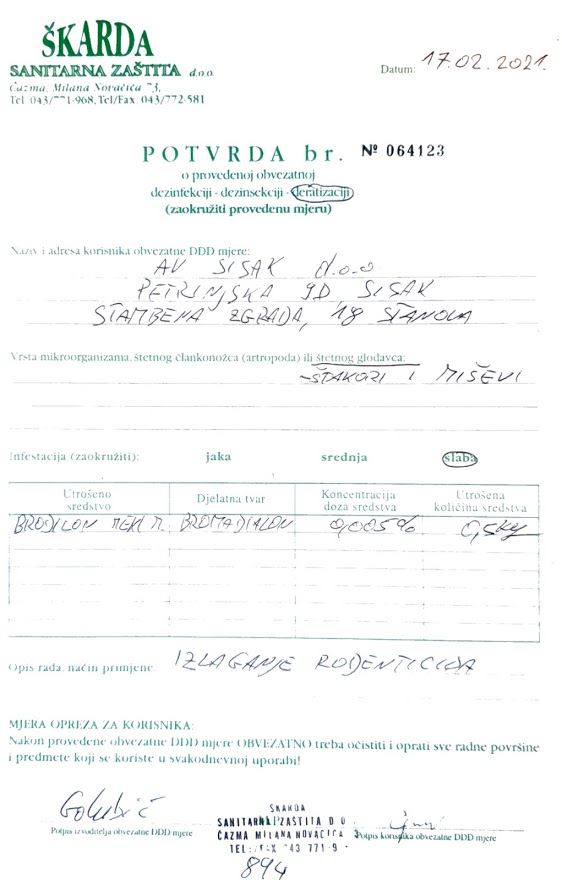 ŠKARDA
SANITARNA ZAŠTITA d.o.o.
Čazma, Milana Novačića 73,
Tel. 043/771-968, Tel/Fax: 043/772-581
Datum: 17.02.2021.
POTVRDA br. Nº 064123
o provedenoj obvezatnoj
dezinfekciji - dezinsekciji - deratizaciji
(zaokružiti provedenu mjeru)
Naziv i adresa korisnika obvezatne DDD mjere:
AV SISAK d.o.o
PETRINJSKA 9D SISAK
STAMBENA ZGRADA, 18 STANOVA
Vrsta mikroorganizama, štetnog člankonožca (artropoda) ili štetnog glodavca:
ŠTAKORI I MIŠEVI
Infestacija (zaokružiti): jaka srednja slaba
Utrošeno sredstvo Djelatna tvar Koncentracija doza sredstva Utrošena količina sredstva
BRODILON MEKI M. BROMADIALON 0,005% 0,5kg
Opis rada, način primjene: IZLAGANJE RODENTICIDA
MJERA OPREZA ZA KORISNIKA:
Nakon provedene obvezatne DDD mjere OBVEZATNO treba očistiti i oprati sve radne površine
i predmete koji se koriste u svakodnevnoj uporabi!
Golubić
Potpis izvoditelja obvezatne DDD mjere
ŠKARDA
SANITARNA ZAŠTITA D O
ČAZMA MILANA NOVAČIĆA
TEL:/FAX 043 771-9
894
Potpis korisnika obvezatne DDD mjere